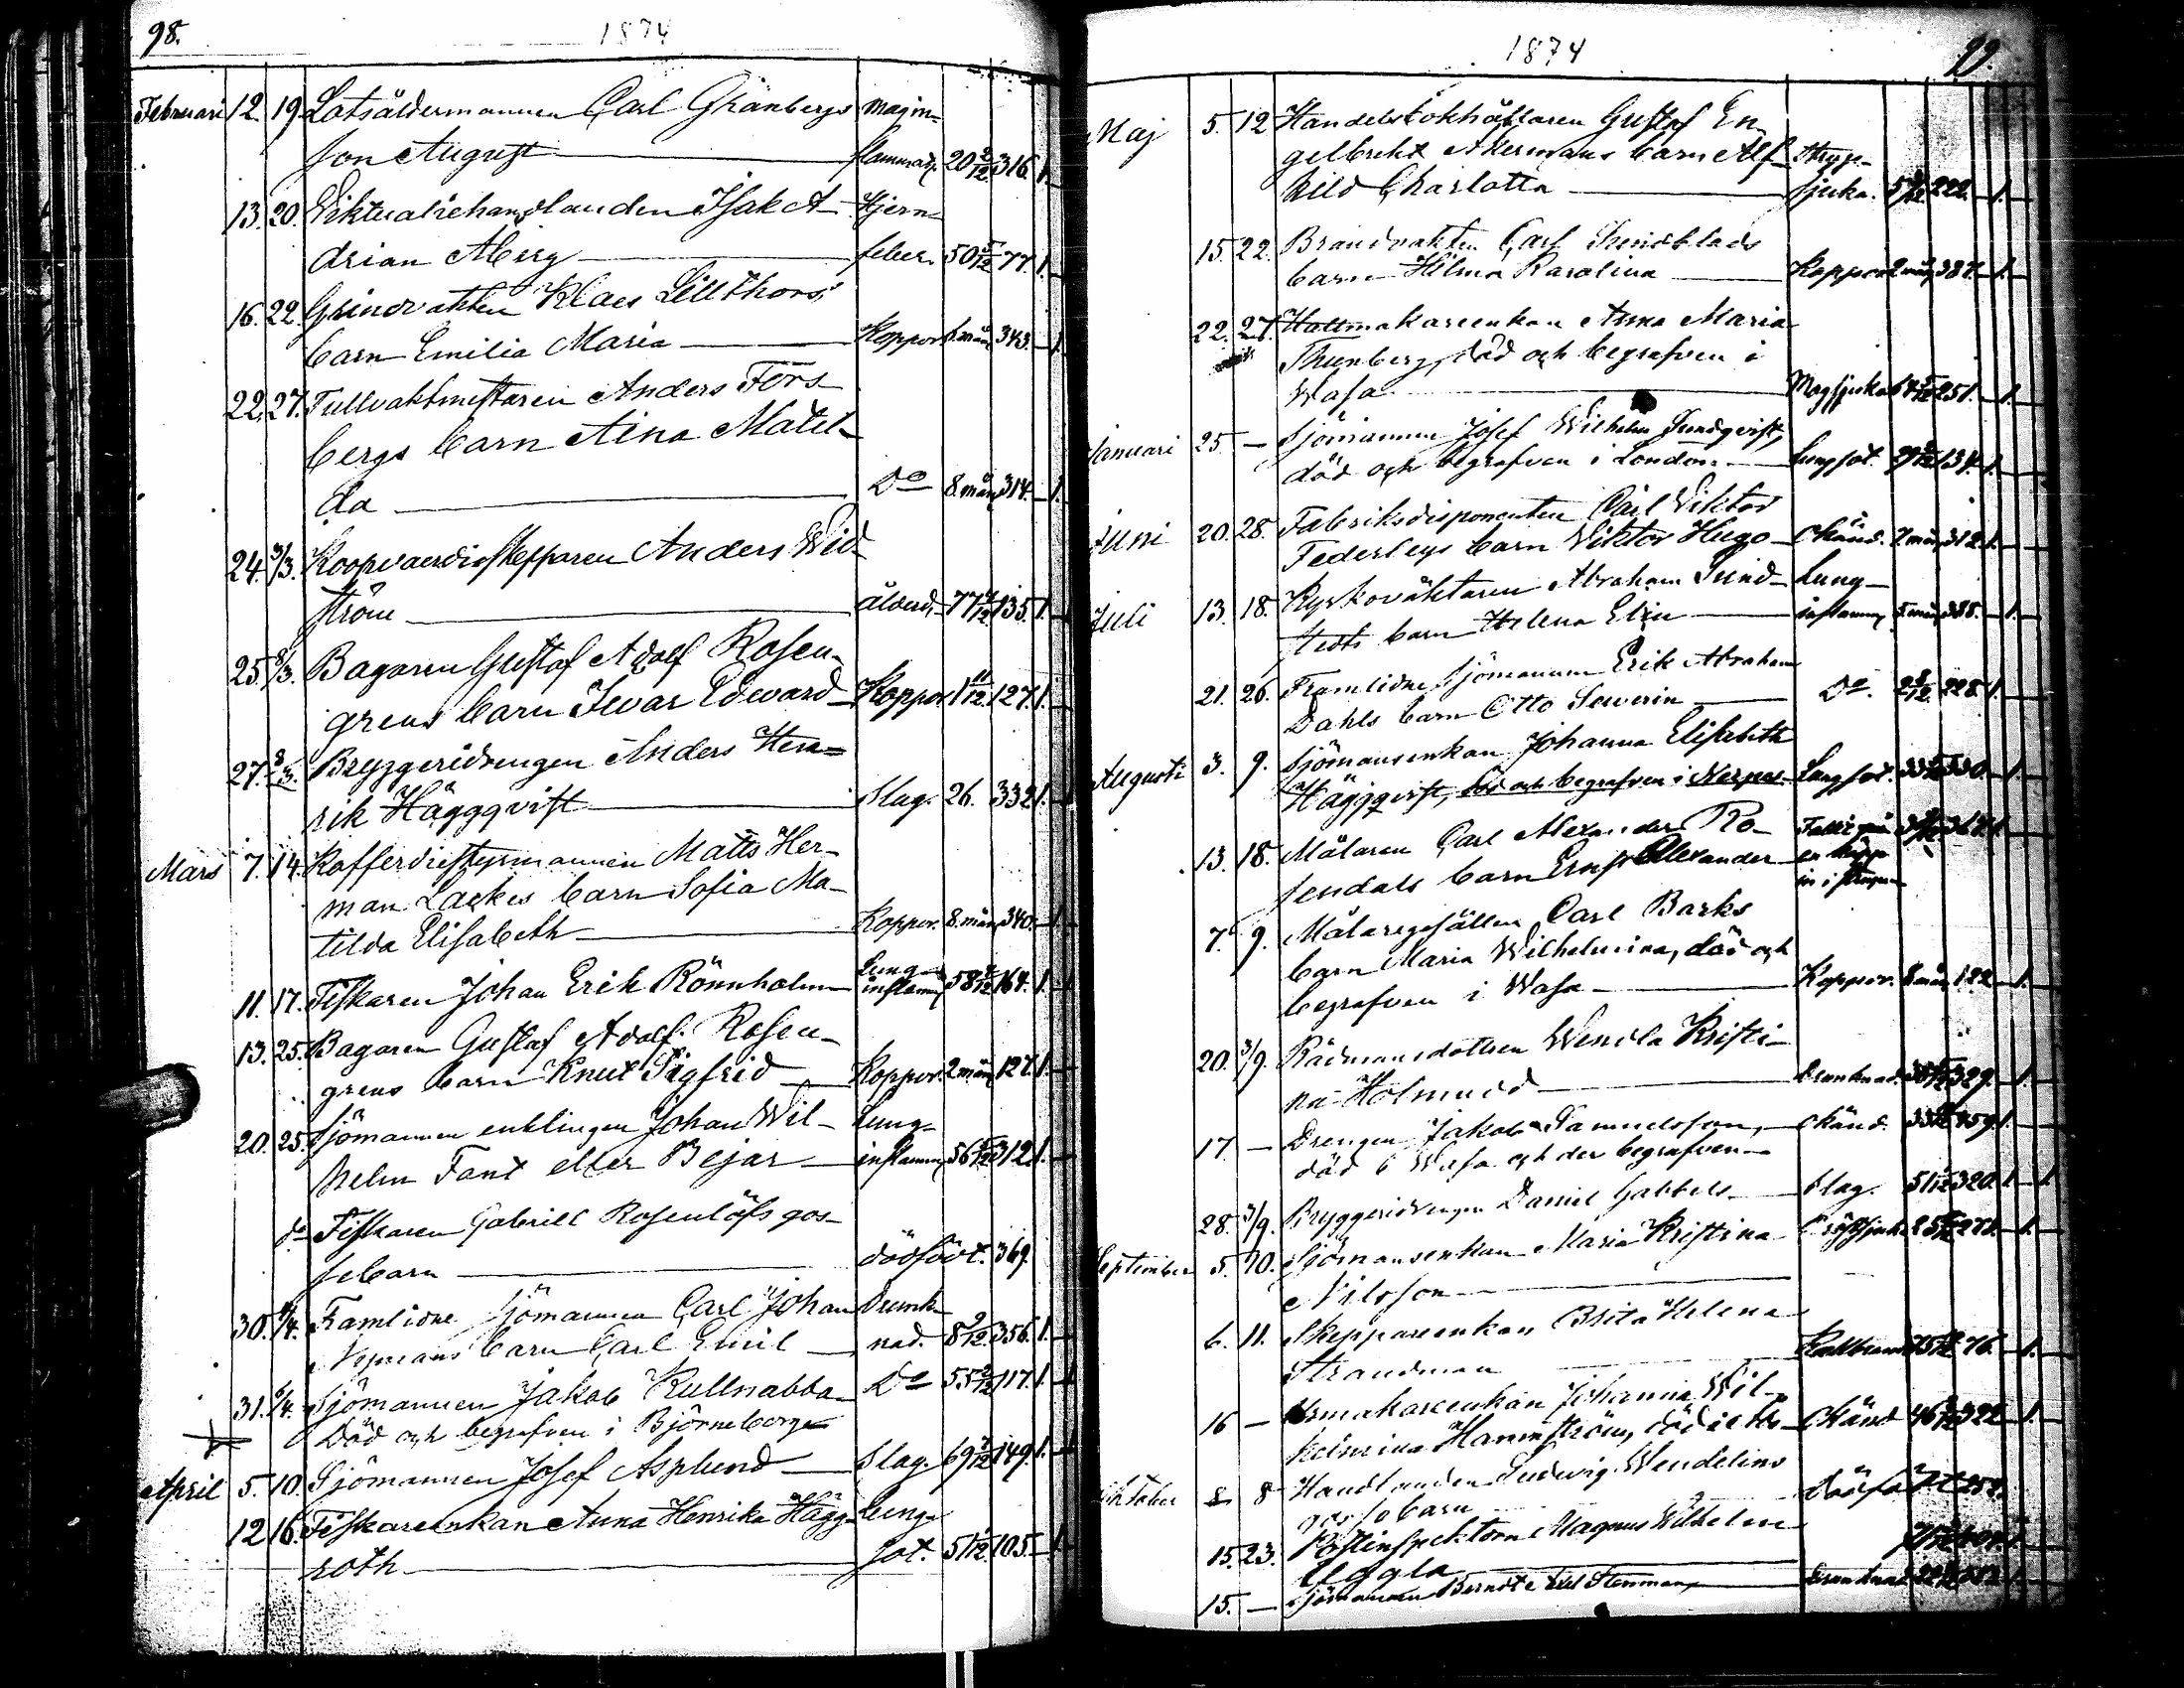 98. 1874
Februari 12. 19. Lotsåldermannen Carl Granbergs magin-
son August flammat. 20 2/12. 316. 1.
13. 20. Viktualiehandlanden Isak A- Hjern-
drian Åberg feber. 50 5/12 77. 1.
16. 22. Grindvakten Klaes Lillthors
barn Emilia Maria Koppor 6. mån 343. 1.
22. 27. Tullvaktmestaren Anders Fors-
bergs barn Aina Matil-
da Do 8. mån 314. 1.
24. 3/3. Koopvaerdieskepparen Anders Wid-
ström ålderd. 77 135. 1.
25. 8/3. Bagaren Gustaf Adolf Rosen-
grens barn Ivar Edvard Koppor 1 11/12. 127. 1.
27. 8/3. Bryggeridrengen Anders Hen-
rik Häggqvist Slag. 26. 332. 1.
Mars 7. 14. Kofferdiestyrmannen Matts Her-
man Lackes barn Sofia Ma-
tilda Elisabeth Koppor. 8. mån 340. 1.
11. 17. Fiskaren Johan Erik Rönnholm Lung-
inflamm 58 164. 1.
13. 25. Bagaren Gustaf Adolf Rosen-
grens barn Knut Sigfrid Koppor. 2 mån 127. 1.
20. 25. Sjömannen enklingen Johan Wil- Lung-
helm Fant eller Bejar inflamm 56 312. 1.
do Fiskaren Gabriel Rosenlöfs gos-
sebarn dödfödt. 369.
30. /4. Framlidne Sjömannen Carl Johan Drunk-
Nymans barn Carl Emil nad. 8 9/12. 356. 1.
31. /4. Sjömannen Jakob Kullnabba Do 55 2/12 117. 1.
Död och begrafven i Björneborg
April 5. 10. Sjömannen Josef Asplund Slag. 69 149. 1.
12. 16. Fiskareenkan Anna Henrika Hägg- Lung-
roth sot. 51 105. 1.
1874 99.
Maj 5. 12. Handelsbokhållaren Gustaf En-
gelbrekt Åkermans barn Alf- Stryp-
hild Charlotta sjuka. 5 222. 1.
15. 22. Brandvakten Carl Sundblads
barn Hilma Karolina Koppor 2 mån 387. 1.
22. 27. Hattmakareenkan Anna Maria
Thunberg, död och begrafven i
Wasa Magsjuka 251. 1.
Januari 25. — Sjömannen Josef Wilhelm Sundqvist,
död och begrafven i London. Lungsot. 134. 1.
Juni 20. 28. Fabriksdisponenten Carl Viktor
Federleys barn Viktor Hugo Okänd. 7 mån 312. 1.
Juli 13. 18. Kyrkoväktaren Abraham Sund- Lung-
stedts barn Helena Elin inflamm 5 mån 388. 1.
21. 26. Framlidne Sjömannen Erik Abraham
Dahls barn Otto Severin Do. 228. 1.
Augusti 3. 9. Sjömansenkan Johanna Elisabeth
Häggqvist, död och begrafven i Nerpes Lungsot. 330. 1.
13. 18. Målaren Carl Alexander Ro- Fallit på
sendals barn Ernst Alexander en käpp
in i strupen
7. 9. Målaregesällen Carl Barks
barn Maria Wilhelmina, död och
begrafven i Wasa Koppor. 8 mån 122. 1.
20. 3/9. Rådmansdottren Wendla Kristi-
na Holmudd Drunknad. 329. 1.
17. — Drengen Jakob Samuelsson, Okänd. 159. 1.
död i Wasa och der begrafven
28. 3/9. Bryggeridrengen Daniel Gabbels Slag. 51 320. 1.
September 5. 10. Sjömansenkan Maria Kristina Bröstsjuka 1.
Nilsson
6. 11. Skeppareenkan Brita Helena
Strandman Kallbrand 76. 1.
16 — Urmakareenkan Johanna Wil-
helmina Hammström, död i Okänd 46 322 1.
Oktober 8 8 Handlanden Ludvig Wendelins
gossebarn dödfödt 252.
15. 23. Postinspektoren Magnus Wilhelm
Uggla
15. — Sjömannen Berndt Axel Stenman, Drunknad